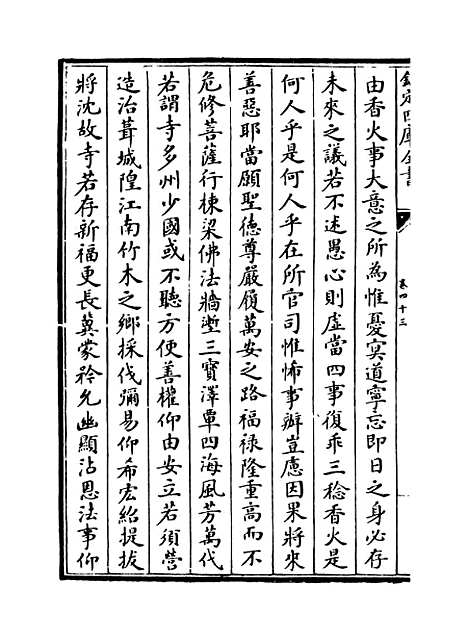 欽定四庫全書
卷四十三
由香火事大意之所為惟憂㝠道寧忘即日之身必存
未來之議若不述愚心則虛當四事復乖三稔香火是
何人乎是何人乎在所官司惟怖事辦豈慮因果將來
善惡耶當願聖徳尊嚴履萬安之路福禄隆重高而不
危修菩薩行棟梁佛法牆壍三寶澤覃四海風芳萬代
若謂寺多州少國或不聽方便善權仰由安立若須營
造治葺城隍江南竹木之鄉採伐彌易仰希宏紹提拔
將沈故寺若存新福更長冀蒙矜允幽顯沾恩法事仰